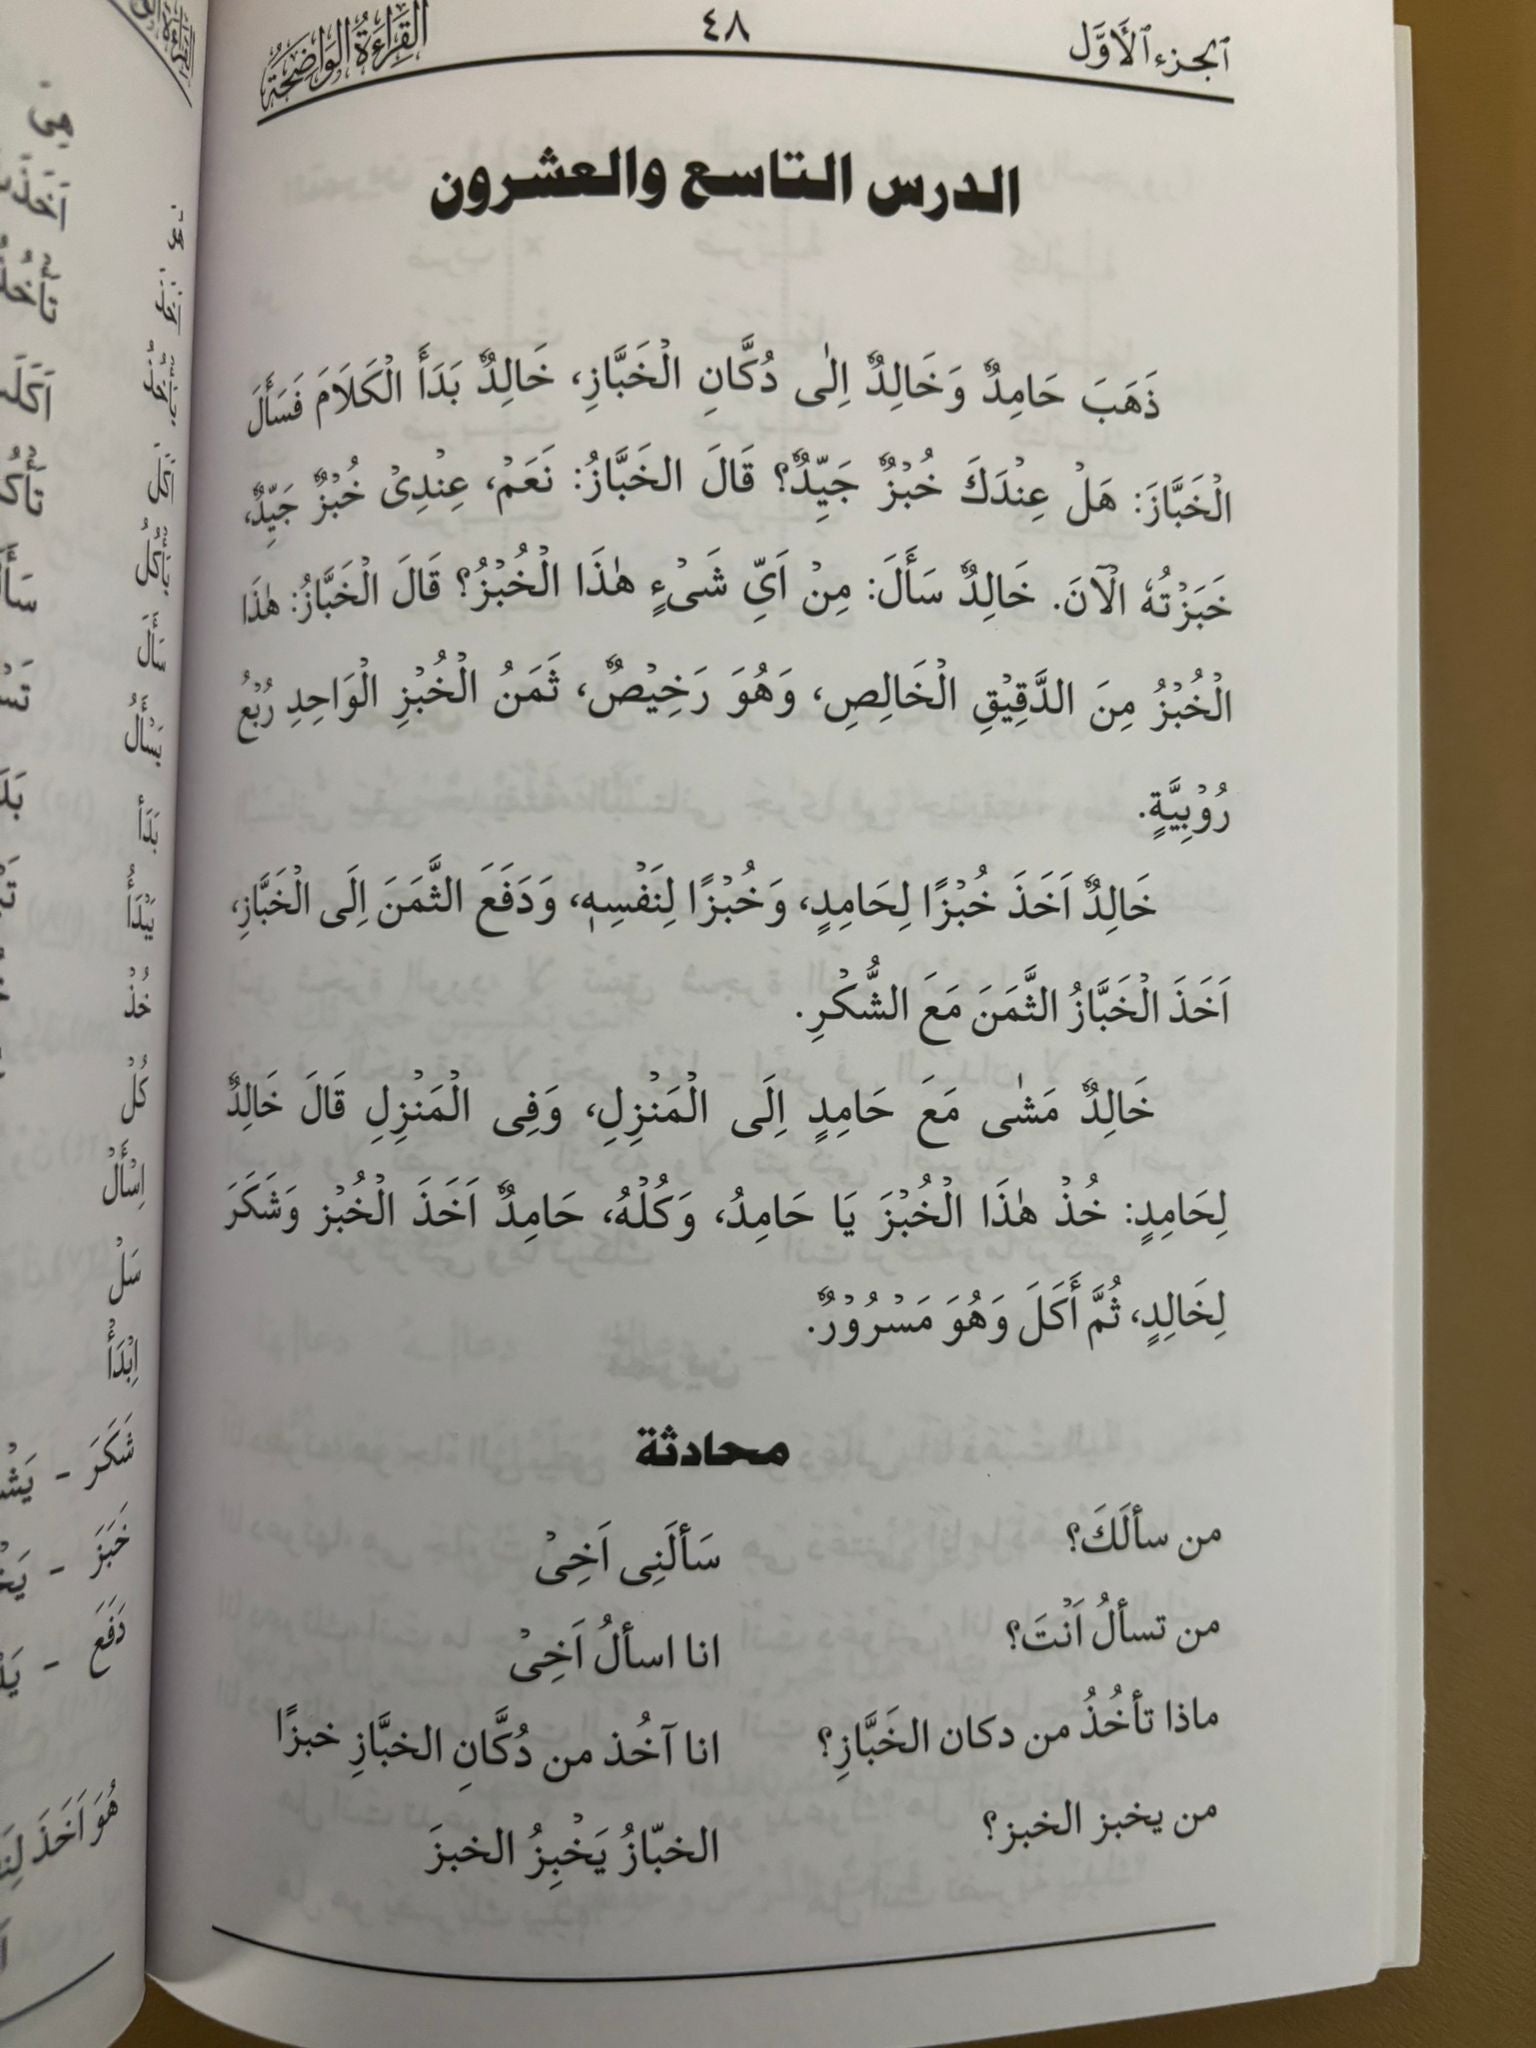 الجزء الأوَّل
٤٨
القراءة الواضحة
الدرس التاسع والعشرون
ذَهَبَ حَامِدٌ وَخَالِدٌ اِلٰى دُكَّانِ الْخَبَّازِ، خَالِدٌ بَدَأَ الْكَلَامَ فَسَأَلَ
الْخَبَّازَ: هَلْ عِنْدَكَ خُبْزٌ جَيِّدٌ؟ قَالَ الخَبَّازُ: نَعَمْ، عِنْدِىْ خُبْزٌ جَيِّدٌ،
خَبَزْتُهٗ الْآنَ. خَالِدٌ سَأَلَ: مِنْ اَيِّ شَىْءٍ هٰذَا الْخُبْزُ؟ قَالَ الْخَبَّازُ: هٰذَا
الْخُبْزُ مِنَ الدَّقِيْقِ الْخَالِصِ، وَهُوَ رَخِيْصٌ، ثَمَنُ الْخُبْزِ الْوَاحِدِ رُبْعُ
رُوْبِيَّةٍ.
خَالِدٌ اَخَذَ خُبْزًا لِحَامِدٍ، وَخُبْزًا لِنَفْسِهٖ، وَدَفَعَ الثَّمَنَ اِلَى الْخَبَّازِ،
اَخَذَ الْخَبَّازُ الثَّمَنَ مَعَ الشُّكْرِ.
خَالِدٌ مَشٰى مَعَ حَامِدٍ اِلَى الْمَنْزِلِ، وَفِى الْمَنْزِلِ قَالَ خَالِدٌ
لِحَامِدٍ: خُذْ هٰذَا الْخُبْزَ يَا حَامِدُ، وَكُلْهُ، حَامِدٌ اَخَذَ الْخُبْز وَشَكَرَ
لِخَالِدٍ، ثُمَّ أَكَلَ وَهُوَ مَسْرُوْرٌ.
محادثة
من سألَكَ؟ سَألَنِى اَخِىْ
من تسألُ اَنْتَ؟ انا اسألُ اَخِىْ
ماذا تأخُذُ من دكان الخَبَّازِ؟ انا آخُذ من دُكَّانِ الخبَّازِ خبزًا
من يخبز الخبز؟ الخبّازُ يَخْبِزُ الخبزَ
يَأْكُلُ
سَأَلَ
يَسْأَلُ
بَدَأَ
يَبْدَأُ
خُذْ
كُلْ
اِسْأَلْ
سَلْ
اِبْدَأْ
شَكَرَ –
خَبَزَ –
دَفَعَ –
هُوَ اَخَذَ